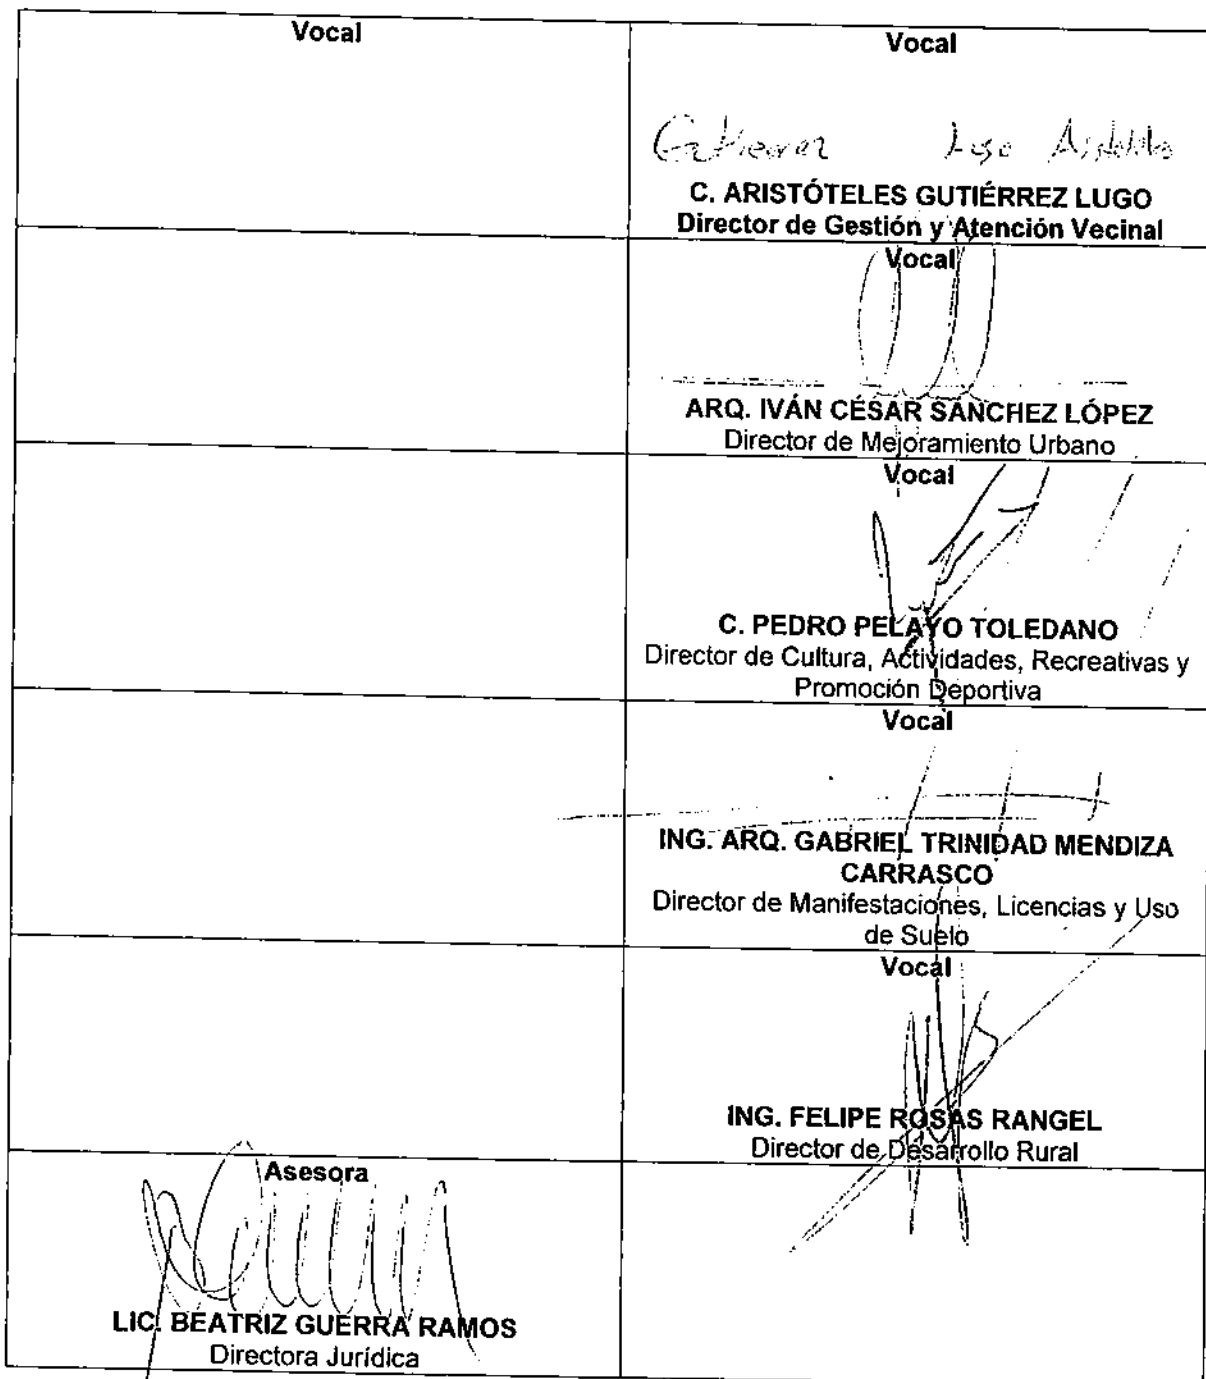 Vocal
Vocal
Gutierrez Lugo Aristóteles
C. ARISTÓTELES GUTIÉRREZ LUGO
Director de Gestión y Atención Vecinal
Vocal
ARQ. IVÁN CÉSAR SÁNCHEZ LÓPEZ
Director de Mejoramiento Urbano
Vocal
C. PEDRO PELAYO TOLEDANO
Director de Cultura, Actividades, Recreativas y
Promoción Deportiva
Vocal
ING. ARQ. GABRIEL TRINIDAD MENDIZA
CARRASCO
Director de Manifestaciones, Licencias y Uso
de Suelo
Vocal
ING. FELIPE ROSAS RANGEL
Director de Desarrollo Rural
Asesora
LIC. BEATRIZ GUERRA RAMOS
Directora Jurídica